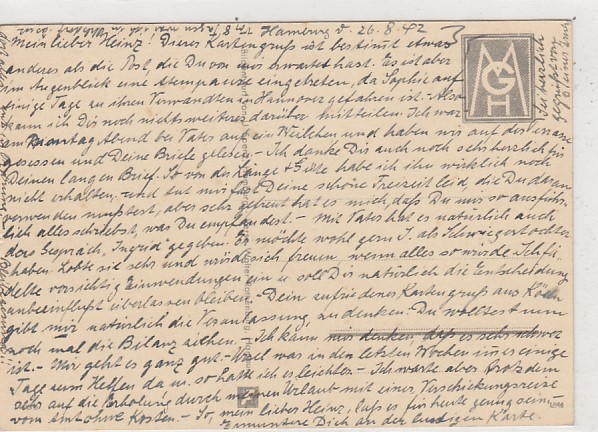 Hamburg d. 26.8.42
Mein lieber Heinz! Dieser Kartengruß ist bestimmt etwas
anderes als die Post, die Du von mir erwartet hast. Es ist aber
im Augenblick eine Atempause eingetreten, da Sophie auf
einige Tage zu ihren Verwandten in Hannover gefahren ist. Also
kann ich Dir noch nichts weiteres darüber mitteilen. Ich war
am Abend bei Vater auf ein Weilchen und haben wir auf der
gesessen und Deine Briefe gelesen. - Ich danke Dir auch noch sehr herzlich für
Deinen langen Brief. So von der Länge + Güte habe ich ihn wirklich noch
nicht erhalten, und tut mir für Deine schöne Freizeit leid, die Du daran
verwenden mußtest, aber sehr gefreut hat es mich, daß Du mir so ausführ-
lich alles schriebst, was Du empfandest. - Mit Vater hat es natürlich auch
das Gespräch „Ingrid" gegeben. Er möchte wohl gern I. als Schwiegertochter
haben. Lobte sie sehr und würde sich freuen, wenn alles so würde. Ich
vorsichtig Einwendungen ein u. soll Dir natürlich die Entscheidung
unbeeinflußt überlassen bleiben. - Dein zufriedener Kartengruß aus Köln
gibt mir natürlich die Veranlassung, zu denken: Du wolltest nun
noch mal die Bilanz ziehen. - Ich kann mir denken, daß es sehr schwer
ist. - Mir geht es ganz gut. - Ursel war in den letzten Wochen immer einige
Tage zum Helfen da u. so hatte ich es leichter. - Ich warte aber trotzdem
sehr auf die Erholung durch meinen Urlaub mit einer Verschickungsreise
vom Amt ohne Kosten. - So, mein lieber Heinz, laß es für heute genug sein.
Ermuntere Dich an der lustigen Karte.
Sei herzlich
gegrüßt von
Deiner
MGH